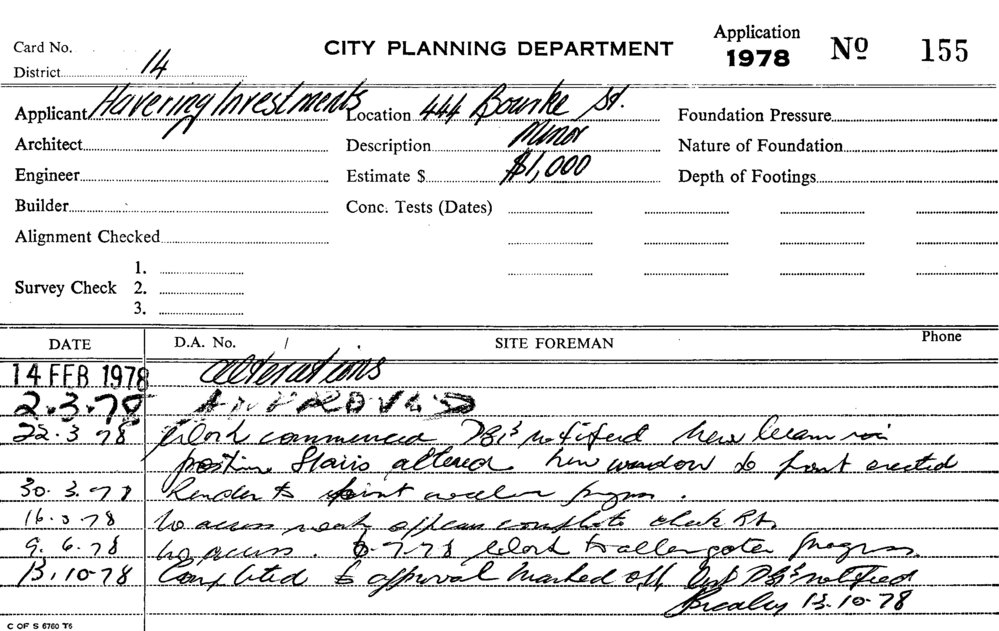 Card No.
CITY PLANNING DEPARTMENT
Application
1978 Nº 155
District 14
Applicant Havering Investments Location 444 Bourke St. Foundation Pressure
Architect Description Minor Nature of Foundation
Engineer Estimate $ $1,000 Depth of Footings
Builder Conc. Tests (Dates)
Alignment Checked
1.
Survey Check 2.
3.
DATE D.A. No. / SITE FOREMAN Phone
14 FEB 1978 alterations
2.3.78 APPROVED
22.3.78 Work commenced notified New beam in
position Stairs altered New window to front erected
30.3.78 Render to front
16. 78 No access complete check
9.6.78 No access. 78 Work to progress
13.10.78 Completed to approval Marked off notified
13.10.78
C OF S 6760 T6